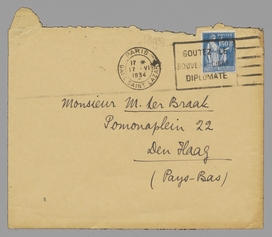 PARIS
17
17 · VI
1934
GOUTEZ
DIPLOMATE
Monsieur M. ter Braak
Pomonaplein 22
Den Haag
(Pays-Bas)